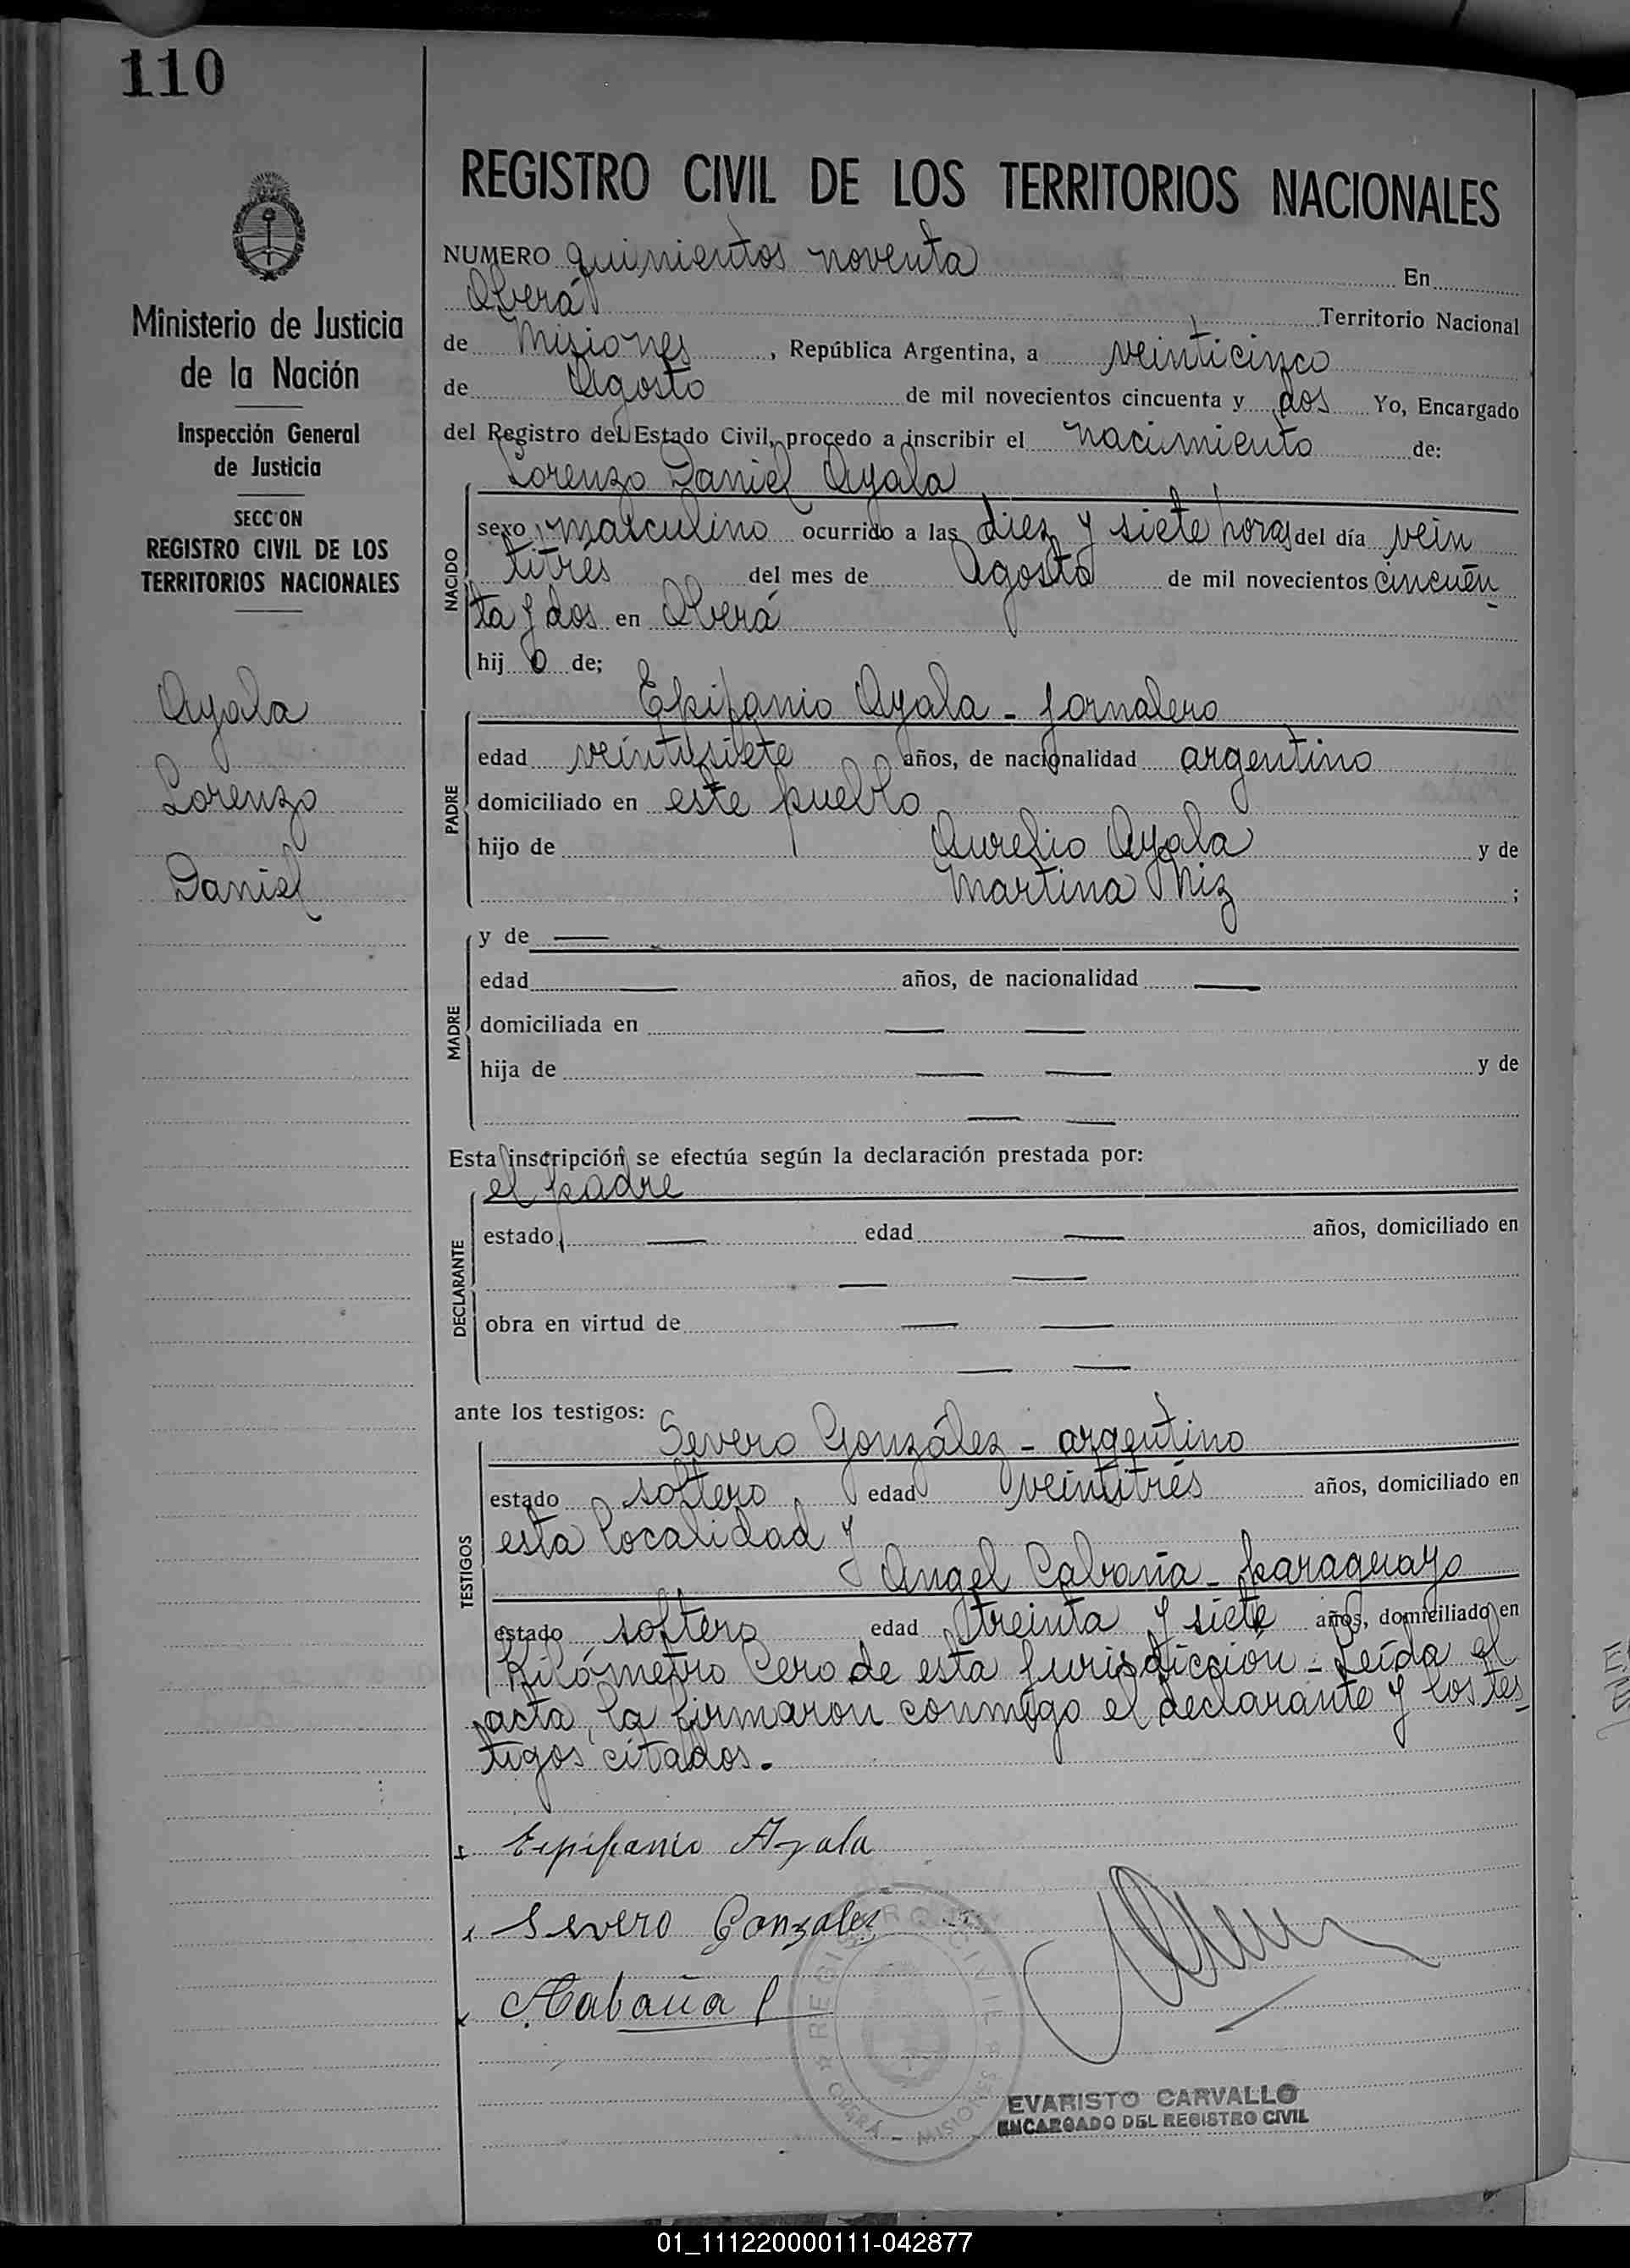 110
REGISTRO CIVIL DE LOS TERRITORIOS NACIONALES
Ministerio de Justicia
de la Nación
Inspección General
de Justicia
SECC ON
REGISTRO CIVIL DE LOS
TERRITORIOS NACIONALES
Ayala
Lorenzo
Daniel
NUMERO quinientos noventa En
Oberá Territorio Nacional
de Misiones, República Argentina, a veinticinco
de Agosto de mil novecientos cincuenta y dos Yo, Encargado
del Registro del Estado Civil, procedo a inscribir el nacimiento de:
Lorenzo Daniel Ayala
NACIDO
sexo masculino ocurrido a las diez y siete horas del día vein
titrés del mes de Agosto de mil novecientos cincuen
ta y dos en Oberá
hij o de;
PADRE
Epifanio Ayala - jornalero
edad veintisiete años, de nacionalidad argentino
domiciliado en este pueblo
hijo de Aurelio Ayala y de
Martina Niz ;
MADRE
y de —
edad — años, de nacionalidad —
domiciliada en — —
hija de — — y de
— —
Esta inscripción se efectúa según la declaración prestada por:
el padre
DECLARANTE
estado — edad — años, domiciliado en
— —
obra en virtud de — —
— —
ante los testigos:
TESTIGOS
Severo González - argentino
estado soltero edad veintitrés años, domiciliado en
esta localidad y
Angel Cabaña - paraguayo
estado soltero edad treinta y siete años, domiciliado en
Kilómetro Cero de esta jurisdicción - Leída el
acta, la firmaron conmigo el declarante y los tes
tigos citados.
Epifanio Ayala
Severo Gonzalez
A Cabaña
REGISTRO CIVIL
OBERÁ - MISIONES
EVARISTO CARVALLO
ENCARGADO DEL REGISTRO CIVIL
01_111220000111-042877